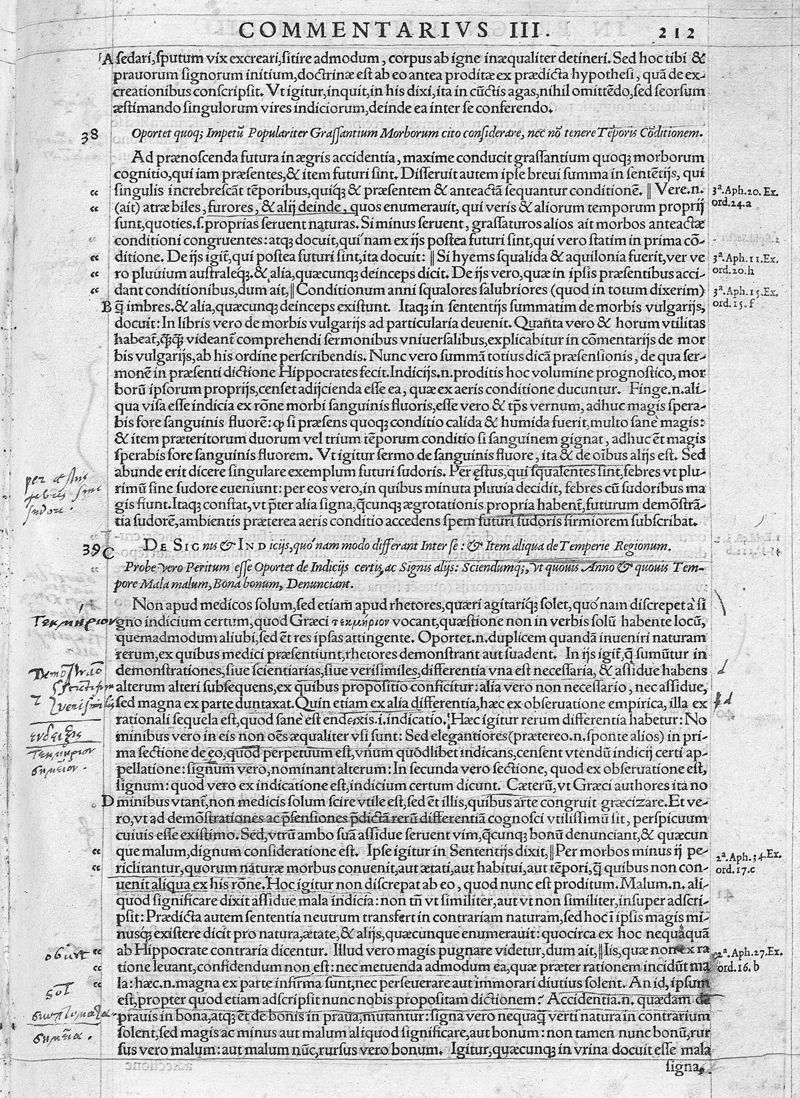 COMMENTARIVS III. 212
A sedari, sputum vix excreari, sitire admodum, corpus ab igne inæqualiter detineri. Sed hoc tibi &
prauorum signorum initium, doctrinæ est ab eo antea proditæ ex prædicta hypothesi, quã de ex-
creationibus conscripsit. Vt igitur, inquit, in his dixi, ita in cũctis agas, nihil omittẽdo, sed seorsum
æstimando singulorum vires indiciorum, deinde ea inter se conferendo.
38 Oportet quoq; Impetũ Populariter Grassantium Morborum cito considerare, nec nõ tenere Tẽporis Cõditionem.
Ad prænoscenda futura in ægris accidentia, maxime conducit grassantium quoq; morborum
cognitio, qui iam præsentes, & item futuri sint. Disseruit autem ipse breui summa in sentẽtijs, qui
“ singulis increbrescãt tẽporibus, quiq; & præsentem & anteactã sequantur conditionẽ. ‖ Vere.n. 3ª.Aph.20.Ex.
“ (ait) atræ biles, furores, & alij deinde, quos enumerauit, qui veris & aliorum temporum proprij ord.24.a
sunt, quoties.s. proprias seruent naturas. Si minus seruent, grassaturos alios ait morbos anteactæ
conditioni congruentes: atq; docuit, qui nam ex ijs postea futuri sint, qui vero statim in prima cõ-
“ ditione. De ijs igit̃, qui postea futuri sint, ita docuit: ‖ Si hyems squalida & aquilonia fuerit, ver ve 3ª.Aph.11.Ex.
“ ro pluuium australeq;. & alia, quæcunq; deinceps dicit. De ijs vero, quæ in ipsis præsentibus acci- ord.20.h
“ dant conditionibus, dum ait, ‖ Conditionum anni squalores salubriores (quod in totum dixerim) 3ª.Aph.15.Ex.
B q̃ imbres. & alia, quæcunq; deinceps existunt. Itaq; in sententijs summatim de morbis vulgarijs, ord.15.f
docuit: In libris vero de morbis vulgarijs ad particularia deuenit. Quãta vero & horum vtilitas
videant̃ comprehendi sermonibus vniuersalibus, explicabitur in cõmentarijs de mor
bis vulgarijs, ab his ordine perscribendis. Nunc vero summã totius dicã præsensionis, de qua ser-
monẽ in præsenti dictione Hippocrates fecit. Indicijs.n. proditis hoc volumine prognostico, mor
borũ ipsorum proprijs, censet adijcienda esse ea, quæ ex aeris conditione ducuntur. Finge.n. ali-
qua visa esse indicia ex rõne morbi sanguinis fluoris, esse vero & tp̃s vernum, adhuc magis spera-
bis fore sanguinis fluorẽ: ꝙ si præsens quoq; conditio calida & humida fuerit, multo sane magis:
& item præteritorum duorum vel trium tẽporum conditio si sanguinem gignat, adhuc ẽt magis
sperabis fore sanguinis fluorem. Vt igitur sermo de sanguinis fluore, ita & de oĩbus alijs est. Sed
abunde erit dicere singulare exemplum futuri sudoris. Per ęstus, qui squalentes sint, febres vt plu-
rimũ sine sudore eueniunt: per eos vero, in quibus minuta pluuia decidit, febres cũ sudoribus ma
gis fiunt. Itaq; constat, vt p̃ter alia signa, q̃cunq; ægrotationis propria habent, futurum demõstrã-
tia sudorẽ, ambientis præterea aeris conditio accedens spem futuri sudoris firmiorem subscribat.
per æstus
febres sine
sudore.
39 C DE SIGnis & INDicijs, quo nam modo differant Inter se: & Item aliqua de Temperie Regionum.
Probe vero Peritum esse Oportet de Indicijs certis, ac Signis alijs: Sciendumq;, vt quouis Anno & quouis Tem-
pore Mala malum, Bona bonum, Denunciant.
Non apud medicos solum, sed etiam apud rhetores, quæri agitariq; solet, quo nam discrepet a si
τεκμήριον gno indicium certum, quod Græci τεκμήριον vocant, quæstione non in verbis solũ habente locũ,
quemadmodum aliubi, sed ẽt res ipsas attingente. Oportet.n. duplicem quandã inueniri naturam
rerum, ex quibus medici præsentiunt, rhetores demonstrant aut suadent. In ijs igit̃, q̃ sumũtur in
demonstrationes, siue scientiarias, siue verisimiles, differentia vna est necessaria, & assidue habens
alterum alteri subsequens, ex quibus propositio conficitur: alia vero non necessario, nec assidue,
sed magna ex parte duntaxat. Quin etiam ex alia differentia, hæc ex obseruatione empirica, illa ex
rationali sequela est, quod sane est endeixis.i. indicatio. Hæc igitur rerum differentia habetur: No
ἔνδειξις minibus vero in eis non oẽs æqualiter vsi sunt: Sed elegantiores (prætereo.n. sponte alios) in pri-
τεκμήριον ma sectione de eo, quod perpetuum est, vnum quodlibet indicans, censent vtendũ indicij certi ap-
σημεῖον. pellatione: signum vero, nominant alterum: In secunda vero sectione, quod ex obseruatione est,
signum: quod vero ex indicatione est, indicium certum dicunt. Cæterũ, vt Græci authores ita no
D minibus vtant̃, non medicis solum scire vtile est, sed ẽt illis, quibus arte congruit græcizare. Et ve-
ro, vt ad demõstrationes ac p̃sensiones p̃dictã rerũ differentiã cognosci vtilissimũ sit, perspicuum
cuiuis esse existimo. Sed, vtrũ ambo suã assidue seruent vim, q̃cunq; bonũ denunciant, & quæcun
“ que malum, dignum consideratione est. Ipse igitur in Sententijs dixit, ‖ Per morbos minus ij pe- 2ª.Aph.34.Ex.
“ riclitantur, quorum naturæ morbus conuenit, aut ætati, aut habitui, aut tẽpori, q̃ quibus non con- ord.17.c
uenit aliqua ex his rõne. Hoc igitur non discrepat ab eo, quod nunc est proditum. Malum.n. ali-
quod significare dixit assidue mala indicia: non tñ vt similiter, aut vt non similiter, insuper adscri-
psit: Prædicta autem sententia neutrum transfert in contrariam naturam, sed hoc ĩ ipsis magis mi-
nusq; existere dicit pro natura, ætate, & alijs, quæcunque enumerauit: quocirca ex hoc nequaquã
“ ab Hippocrate contraria dicentur. Illud vero magis pugnare videtur, dum ait, ‖ Iis, quæ non ex ra 2ª.Aph.27.Ex.
“ tione leuant, confidendum non est: nec metuenda admodum ea, quæ præter rationem incidũt ma ord.16.b
“ la: hæc.n. magna ex parte infirma sunt, nec perseuerare aut immorari diutius solent. An id, ipsum
est, propter quod etiam adscripsit nunc nobis propositam dictionem? Accidentia.n. quædam de
prauis in bona, atq; ẽt de bonis in praua, mutantur: signa vero nequaq̃ verti natura in contrarium
solent, sed magis ac minus aut malum aliquod significare, aut bonum: non tamen nunc bonũ, rur
sus vero malum: aut malum nũc, rursus vero bonum. Igitur, quæcunq; in vrina docuit esse mala
signa,